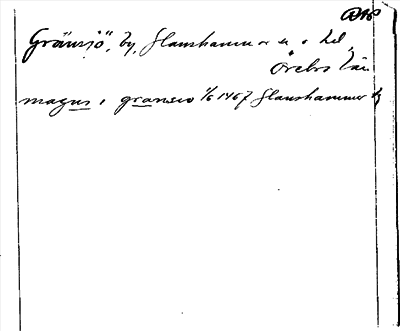 Gränsjö, by, Glanshammars sn o hd,
Örebro län
magnus i gransio 1/6 1467 Glanshammar